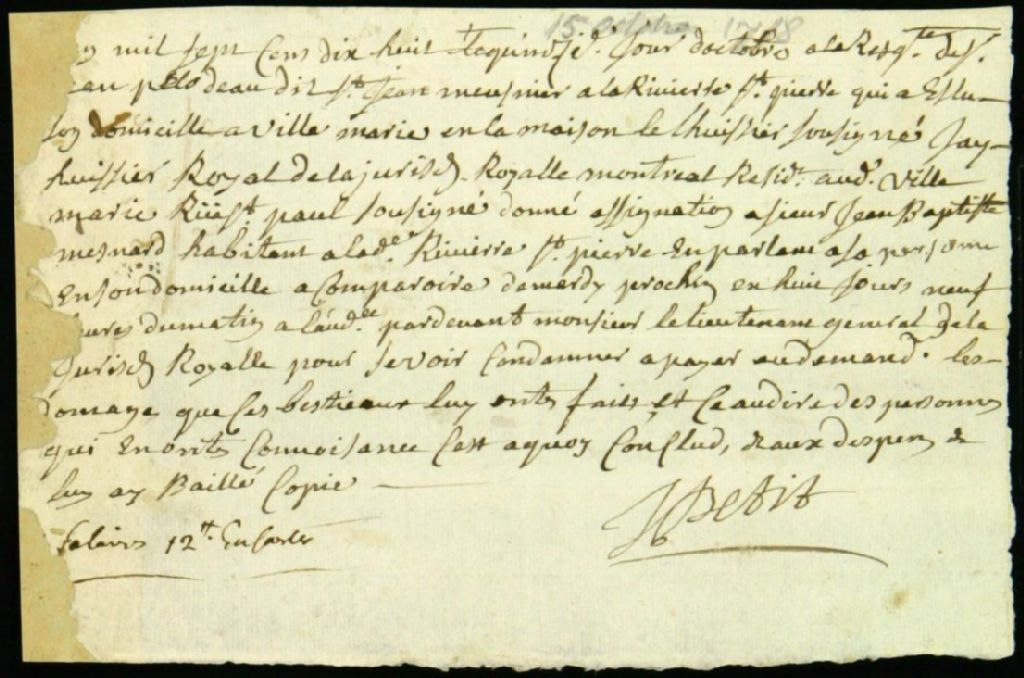 15 octobre 1718
mil sept Cens dix huit le quinzie. Jour doctobre a la Reqte. de J.
ean pilodeau dit St. Jean meusnier a la Rivierre St. pierre qui a Eslu
son domicille a ville marie en la maison de lhuissier sousigné Jay
huissier Royal de la jurisdn. Royalle montreal Residt. aud. ville
marie Rüe St. paul sousigné donné assignation a sieur Jean Baptiste
mesnard habitant a lade. Rivierre St. pierre En parlant a sa personne
En son domicille a Comparoire de mardy prochin en huit jours neuf
heures du matin a laude. pardevant monsieur le lieutenant general de la
Jurisdn Royalle pour se voir Condamner a payer au demand. les
domage que Ces bestieaux luy ontes faits et Ce au dire des personnes
qui En ontes Connoisance Cest a quoy Conclud, & aux despens &
luy ay Baillé Copie
Salaires 12tt En Cartes
Petit